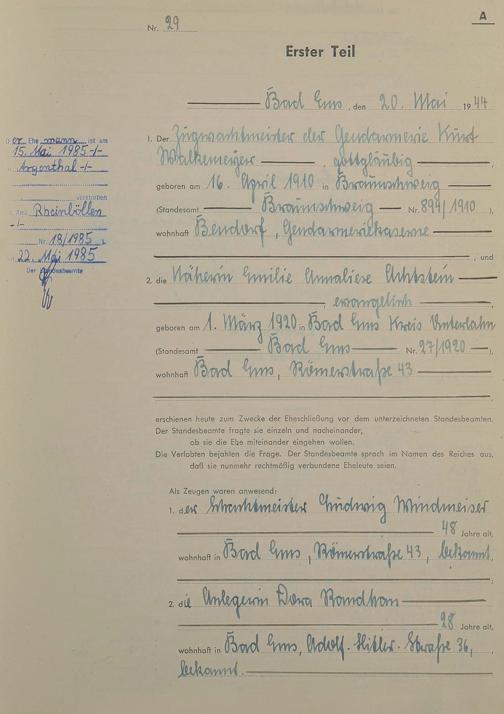 A
Nr. 29
Erster Teil
Bad Ems, den 20. Mai 1944
1. Der Zugwachtmeister der Gendarmerie Kurt
Walkemeyer, gottgläubig,
geboren am 16. April 1910 in Braunschweig
(Standesamt Braunschweig Nr. 899/1910),
wohnhaft Bendorf, Gendarmeriekaserne
, und
2. die Näherin Emilie Annaliese Achtstein
, evangelisch,
geboren am 1. März 1920 in Bad Ems Kreis Unterlahn
(Standesamt Bad Ems Nr. 27/1920),
wohnhaft Bad Ems, Römerstraße 43
erschienen heute zum Zwecke der Eheschließung vor dem unterzeichneten Standesbeamten.
Der Standesbeamte fragte sie einzeln und nacheinander,
ob sie die Ehe miteinander eingehen wollen.
Die Verlobten bejahten die Frage. Der Standesbeamte sprach im Namen des Reiches aus,
daß sie nunmehr rechtmäßig verbundene Eheleute seien.
Als Zeugen waren anwesend:
1. der Ludwig Windmeiser
48 Jahre alt,
wohnhaft in Bad Ems, Römerstraße 43, bekannt.
2. die Anlegerin Dora
28 Jahre alt,
wohnhaft in Bad Ems, Adolf-Hitler-Straße 36,
bekannt.
Der Ehemann ist am
15. Mai 1985 -/-
Argenthal -/-
verstorben
Rheinböllen
-/-
Nr. 18/1985
22. Mai 1985
Der Standesbeamte